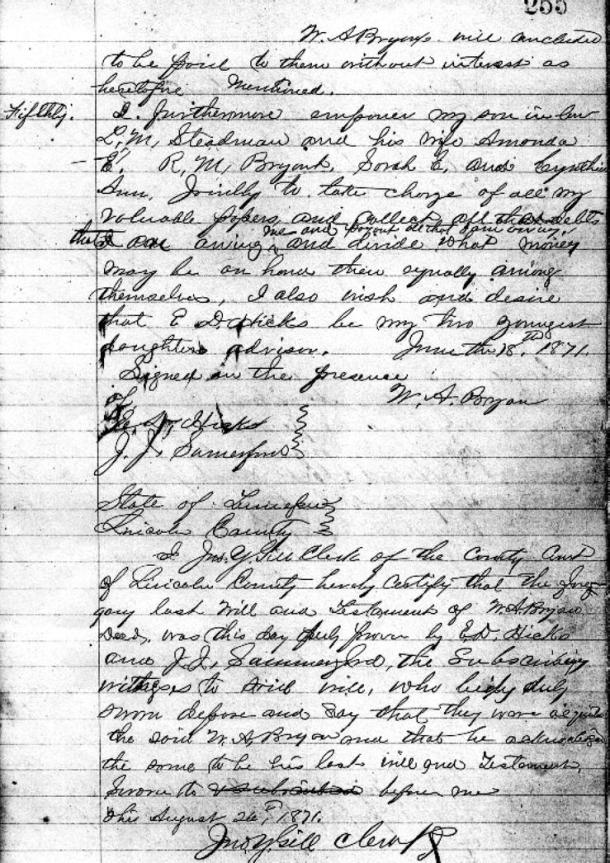 255
W. A Bryans will concluded
to be paid to them without interest as
heretofore Mentioned.
Fifthly. I. furthermore empower my son in law
L, M, Steadman and his wife Amonda
E, R, M, Bryant, Sarah E, and Cynthia
Ann, Joinlly to take charge of all my
valuable papers and collect all the debts
me and payout all that I am owing.
that are owing and divide what money
may be on hand then equally among
themselves, I also wish and desire
that E D Hicks be my two youngest
daughters advisor. June the 18th 1871.
Signed in the presence
of W. A. Bryan
E. D. Hicks
J. J. Sumerford
State of Tennessee
Lincoln County
I Jno. Y. Gill Clerk of the County Court
of Lincoln County hereby certify that the foregoing
last Will and Testament of W. A Bryan
Decd, was this day fully proven by E. D. Hicks
and J. J. Summerford, the Subscribing
witnesses to said will, who being duly
sworn depose and say that they were acquainted
the said W. A Bryan and that he acknowledged
the same to be his last will and Testament,
Sworn to & subscribed before me
this August 26th 1871.
Jno. Y. Gill Clerk